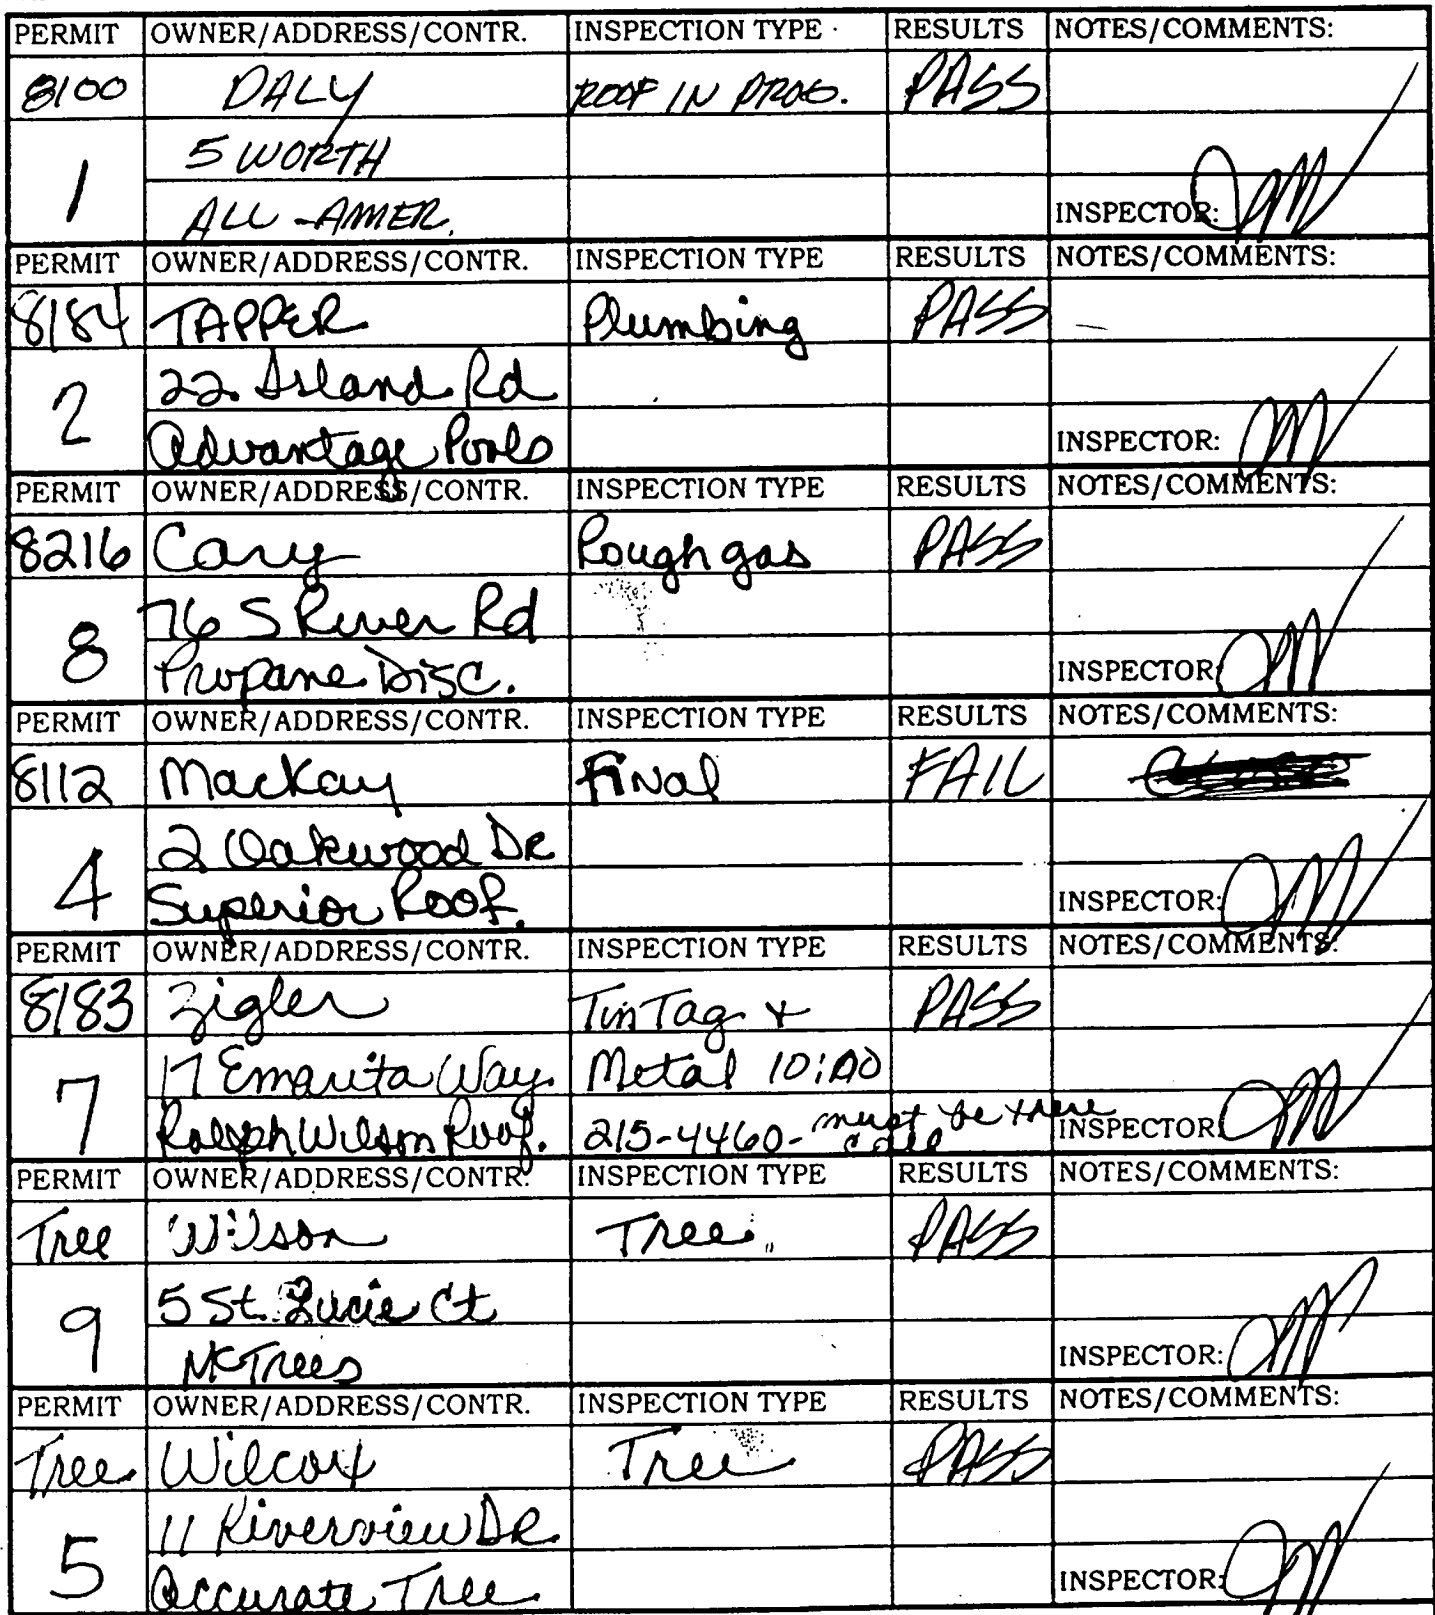 PERMIT OWNER/ADDRESS/CONTR. INSPECTION TYPE RESULTS NOTES/COMMENTS:
8100 DALY ROOF IN PROG. PASS
5 WORTH
1
ALL-AMER. INSPECTOR:
PERMIT OWNER/ADDRESS/CONTR. INSPECTION TYPE RESULTS NOTES/COMMENTS:
8184 TAPPER Plumbing PASS
22 Island Rd
2
Advantage Pools INSPECTOR:
PERMIT OWNER/ADDRESS/CONTR. INSPECTION TYPE RESULTS NOTES/COMMENTS:
8216 Cary Rough gas PASS
76 S River Rd
8
Propane Disc. INSPECTOR:
PERMIT OWNER/ADDRESS/CONTR. INSPECTION TYPE RESULTS NOTES/COMMENTS:
8112 Mackay Final FAIL
2 Oakwood DR
4
Superior Roof. INSPECTOR:
PERMIT OWNER/ADDRESS/CONTR. INSPECTION TYPE RESULTS NOTES/COMMENTS:
8183 Zigler Tin Tag & PASS
17 Emarita Way Metal 10:00
7
Ralph Wilson Roof. 215-4460- must be there call INSPECTOR:
PERMIT OWNER/ADDRESS/CONTR. INSPECTION TYPE RESULTS NOTES/COMMENTS:
Tree Wilson Tree PASS
5 St. Lucie Ct
9
McTrees INSPECTOR:
PERMIT OWNER/ADDRESS/CONTR. INSPECTION TYPE RESULTS NOTES/COMMENTS:
Tree Wilcox Tree PASS
11 Riverview DR
5
Accurate Tree INSPECTOR: